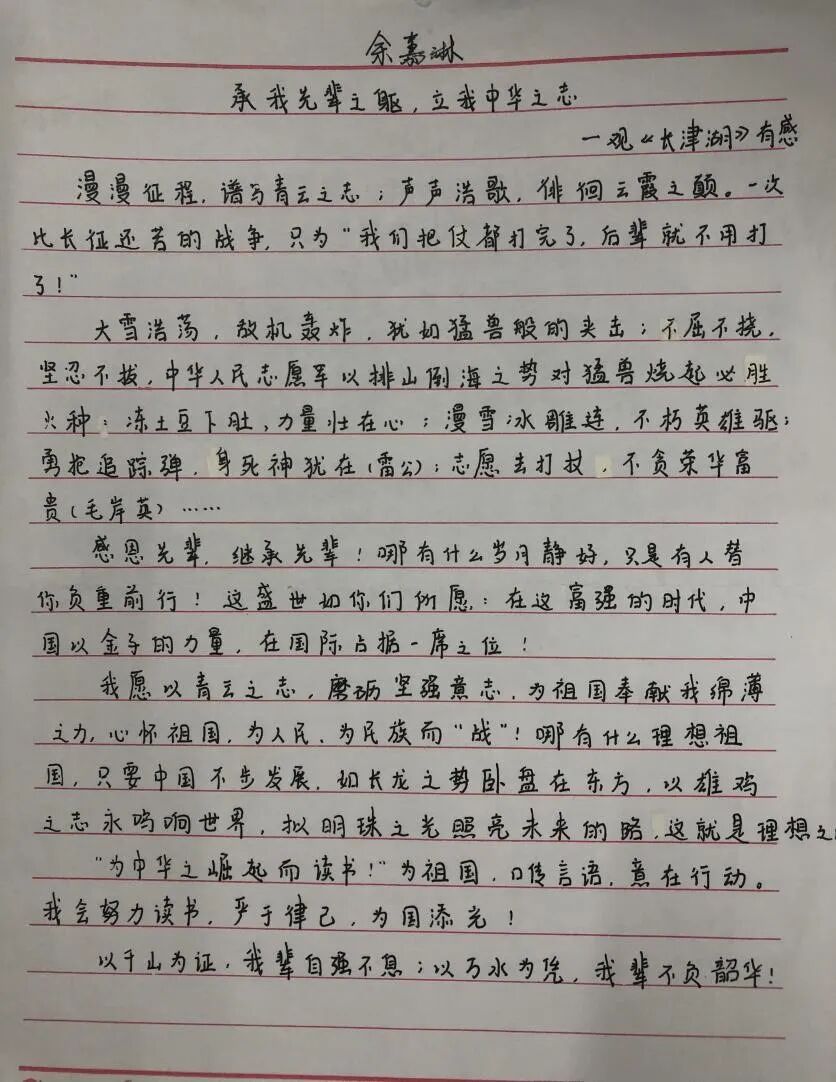 余嘉琳
承我先辈之躯，立我中华之志
—观《长津湖》有感
漫漫征程，谱写青云之志；声声浩歌，徘徊云霞之颠。一次
比长征还苦的战争，只为“我们把仗都打完了，后辈就不用打
了！”
大雪浩荡，敌机轰炸，犹如猛兽般的夹击；不屈不挠，
坚忍不拔，中华人民志愿军以排山倒海之势对猛兽烧起必胜
火种：冻土豆下肚，力量壮在心；漫雪冰雕连，不朽英雄躯；
勇抱追踪弹，身死神犹在（雷公）；志愿去打仗，不贪荣华富
贵（毛岸英）……
感恩先辈，继承先辈！哪有什么岁月静好，只是有人替
你负重前行！这盛世如你们所愿：在这富强的时代，中
国以金子的力量，在国际占据一席之位！
我愿以青云之志，磨砺坚强意志，为祖国奉献我绵薄
之力，心怀祖国，为人民、为民族而“战”！哪有什么理想祖
国，只要中国不步发展，如长龙之势卧盘在东方，以雄鸡
之志永鸣响世界，拟明珠之光照亮未来的路，这就是理想之
“为中华之崛起而读书！”为祖国，口传言语，意在行动。
我会努力读书，严于律己，为国添光！
以千山为证，我辈自强不息；以万水为凭，我辈不负韶华！